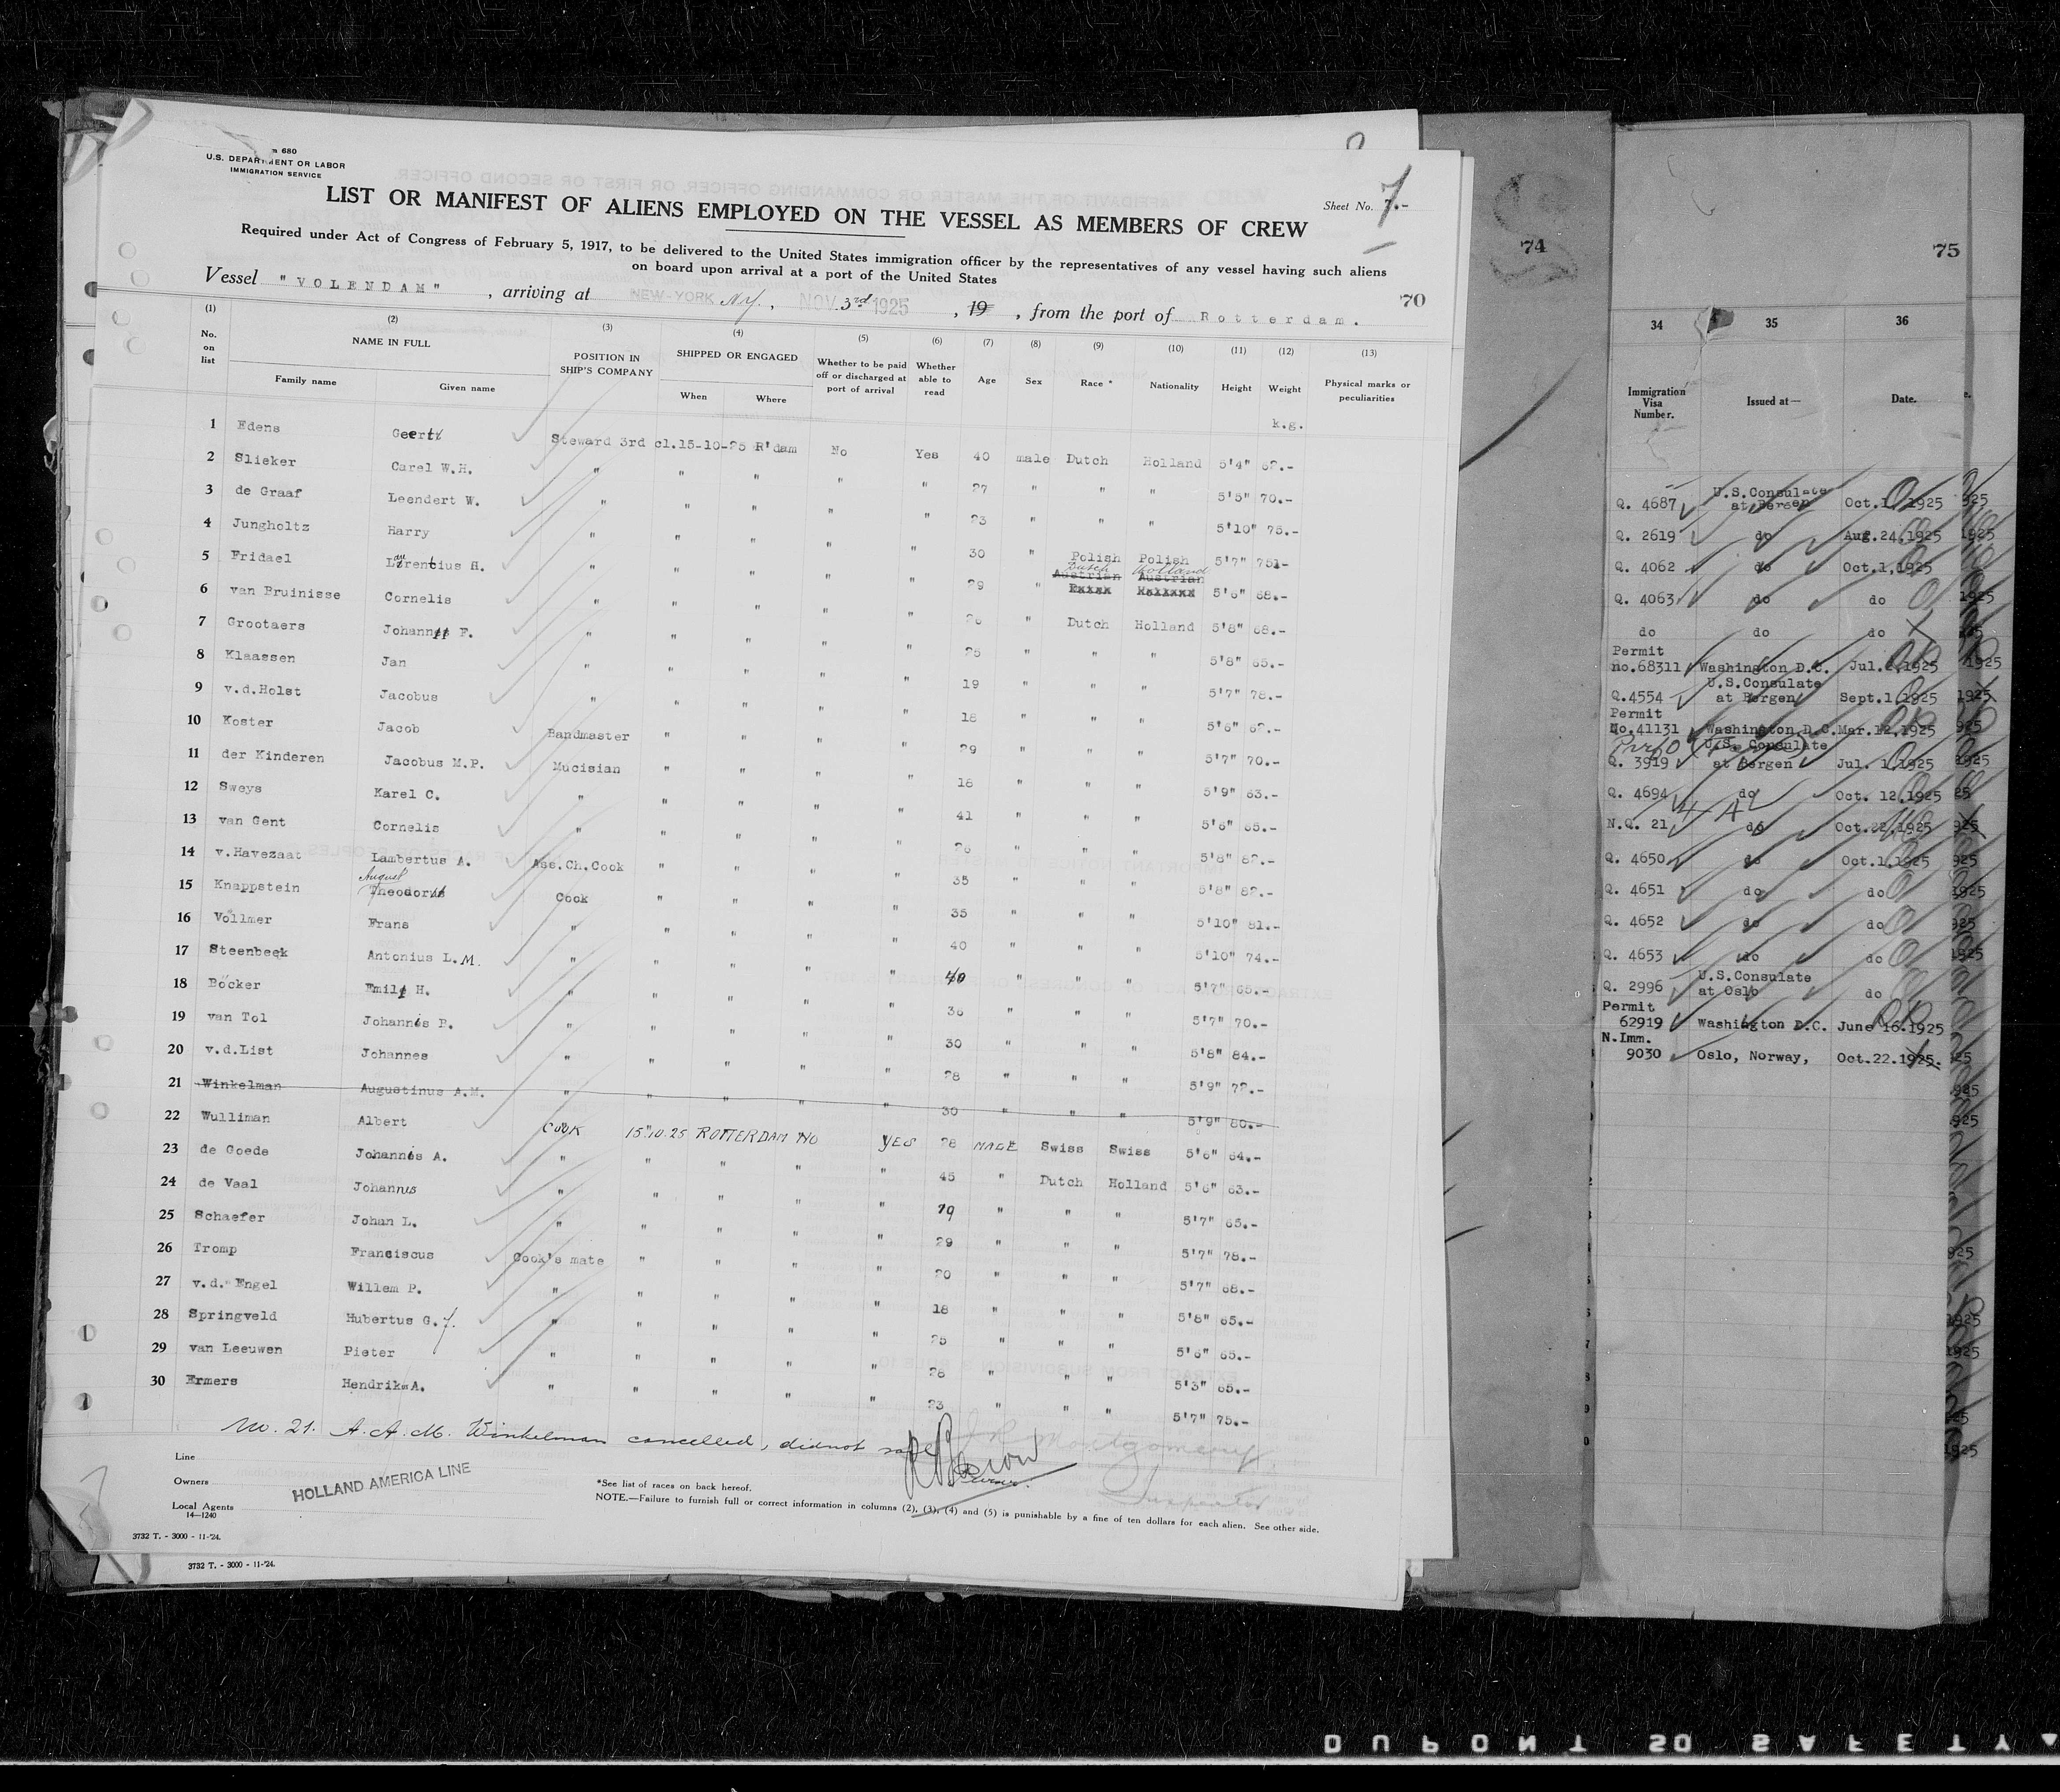 m 680
U.S. DEPARTMENT OR LABOR
IMMIGRATION SERVICE
LIST OR MANIFEST OF ALIENS EMPLOYED ON THE VESSEL AS MEMBERS OF CREW
Sheet No. 7.-
7
Required under Act of Congress of February 5, 1917, to be delivered to the United States immigration officer by the representatives of any vessel having such aliens
on board upon arrival at a port of the United States
Vessel "VOLENDAM", arriving at NEW-YORK N.Y., NOV. 3rd 1925, 19, from the port of Rotterdam.
70
(1) (2) (3) (4) (5) (6) (7) (8) (9) (10) (11) (12) (13)
No. on list NAME IN FULL Family name Given name POSITION IN SHIP'S COMPANY SHIPPED OR ENGAGED When Where Whether to be paid off or discharged at port of arrival Whether able to read Age Sex Race * Nationality Height Weight Physical marks or peculiarities
k.g.
1 Edens Geert Steward 3rd cl. 15-10-25 R'dam No Yes 40 male Dutch Holland 5'4" 62.-
2 Slieker Carel W.H. " " " " " 27 " " " 5'5" 70.-
3 de Graaf Leendert W. " " " " " 23 " " " 5'10" 75.-
4 Jungholtz Harry " " " " " 30 " Polish Polish 5'7" 75.-
5 Fridael Laurentius H. " " " " " 29 " Dutch Holland Austrian Austrian 5'6" 68.-
6 van Bruinisse Cornelis " " " " " 26 " Dutch Holland 5'8" 68.-
7 Grootaers Johann F. " " " " " 25 " " " 5'8" 65.-
8 Klaassen Jan " " " " " 19 " " " 5'7" 78.-
9 v.d.Holst Jacobus " " " " " 18 " " " 5'6" 62.-
10 Koster Jacob Bandmaster " " " " 29 " " " 5'7" 70.-
11 der Kinderen Jacobus M.P. Mucisian " " " " 18 " " " 5'9" 63.-
12 Sweys Karel C. " " " " " 41 " " " 5'6" 65.-
13 van Gent Cornelis " " " " " 26 " " " 5'8" 82.-
14 v.Havezaat Lambertus A. Ass.Ch.Cook " " " " 35 " " " 5'8" 82.-
15 Knappstein August Theodor Cook " " " " 35 " " " 5'10" 81.-
16 Völlmer Frans " " " " " 40 " " " 5'10" 74.-
17 Steenbeek Antonius L.M. " " " " " 40 " " " 5'7" 65.-
18 Böcker Emil H. " " " " " 36 " " " 5'7" 70.-
19 van Tol Johannes P. " " " " " 30 " " " 5'8" 84.-
20 v.d.List Johannes " " " " " 28 " " " 5'9" 72.-
21 Winkelman Augustinus A.M. " " " " " 30 " " " 5'9" 80.-
22 Wulliman Albert COOK 15.10.25 ROTTERDAM NO YES 28 MALE Swiss Swiss 5'6" 64.-
23 de Goede Johannes A. " " " " " 45 " Dutch Holland 5'6" 63.-
24 de Vaal Johannes " " " " " 19 " " " 5'7" 65.-
25 Schaefer Johan L. " " " " " 29 " " " 5'7" 78.-
26 Tromp Franciscus Cook's mate " " " " 20 " " " 5'7" 68.-
27 v.d. Engel Willem P. " " " " " 18 " " " 5'8" 65.-
28 Springveld Hubertus G.J. " " " " " 25 " " " 5'6" 65.-
29 van Leeuwen Pieter " " " " " 28 " " " 5'3" 65.-
30 Ermers Hendrik A. " " " " " 23 " " " 5'7" 75.-
No. 21. A.A.M. Winkelman cancelled, did not sail
J R Montgomery
Inspector
Line
Owners HOLLAND AMERICA LINE
Local Agents
14—1240
*See list of races on back hereof.
NOTE.—Failure to furnish full or correct information in columns (2), (3), (4) and (5) is punishable by a fine of ten dollars for each alien. See other side.
3732 T. - 3000 - 11-'24.
3732 T. - 3000 - 11-'24.
74
75
34 35 36
Immigration Visa Number. Issued at— Date.
Q. 4687 U.S.Consulate at Bergen Oct.1,1925
Q. 2619 do Aug.24,1925
Q. 4062 do Oct.1,1925
Q. 4063 do do
do do do
Permit no.68311 Washington D.C. Jul. 1925
Q.4554 U.S.Consulate at Bergen Sept.1,1925
Permit No.41131 Washington D.C. Mar.12,1925
Q. 3919 U.S. Consulate at Bergen Jul. 1,1925
Q. 4694 do Oct. 12,1925
N.Q. 21 do Oct.22,1925
Q. 4650 do Oct.1,1925
Q. 4651 do do
Q. 4652 do do
Q. 4653 do do
Q. 2996 U.S.Consulate at Oslo do
Permit 62919 Washington D.C. June 16.1925
N.Imm. 9030 Oslo, Norway, Oct.22.1925.
DUPONT SAFETY